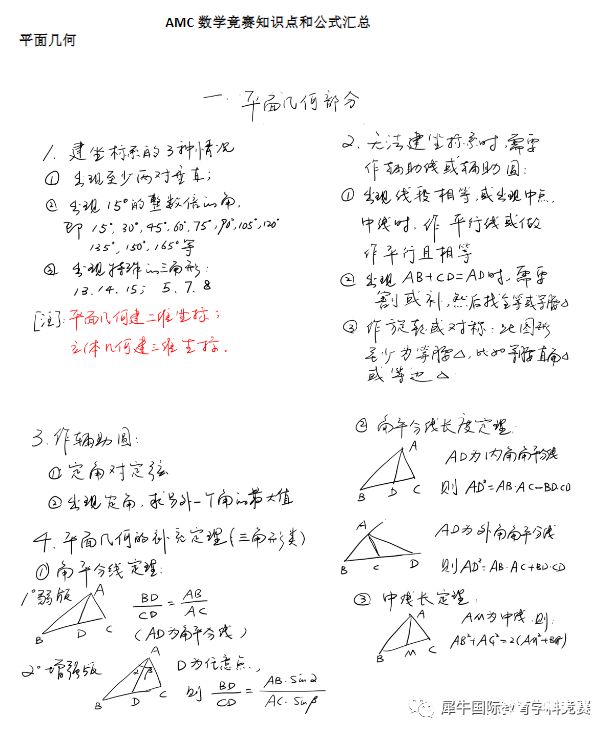 AMC 数学竞赛知识点和公式汇总
平面几何
一. 平面几何部分
1. 建坐标系的3种情况
① 出现至少两对垂直;
② 出现15°的整数倍的角,
即 15°, 30°, 45°, 60°, 75°, 90°, 105°, 120°
135°, 150°, 165°等
③ 出现特殊的三角形:
13. 14. 15; 5. 7. 8
[注]: 平面几何建二维坐标;
立体几何建三维坐标.
2. 无法建坐标系时, 需要
作辅助线或辅助圆:
① 出现线段相等, 或出现中点,
中线时, 作平行线或做
作平行且相等
② 出现 AB+CD=AD时, 需要
割或补, 然后找全等或等腰△
③ 作旋转或对称: 此图形
至少为等腰△, 比如等腰直角△
或等边△
3. 作辅助圆:
① 定角对定弦
② 出现定角, 求另外一个角的最大值
4. 平面几何的补充定理(三角形类)
① 角平分线定理:
1° 弱版
A
B D C
BD/CD = AB/AC
(AD为角平分线)
2° 增强版
A
α β
B D C
D为任意点,
则 BD/CD = AB·Sinα/AC·Sinβ
② 角平分线长度定理:
A
B D C
AD为内角角平分线
则 AD²=AB·AC-BD·CD
A
B C D
AD为外角角平分线
则AD²=-AB·AC+BD·CD
③ 中线长定理:
A
B M C
AM为中线, 则:
AB²+AC²=2(AM²+BM²)
犀牛国际教育学科竞赛